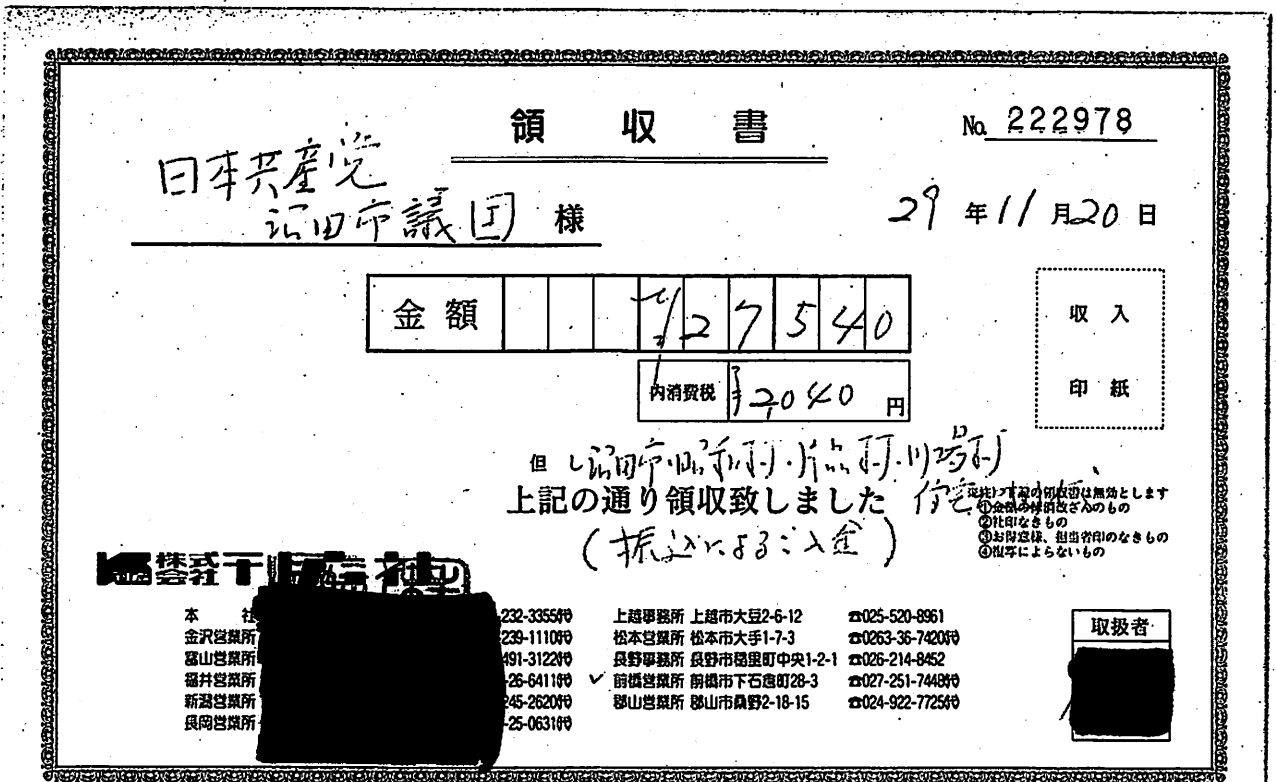 領収書
No. 222978
日本共産党
沼田市議団 様
29年11月20日
金額 ¥27540
内消費税 ¥2,040円
収入
印紙
但し沼田市昭和村・片品村・川場村
上記の通り領収致しました 住宅
(振込によるご入金)
下記の領収書は無効とします
①金額の改ざんのもの
②社印なきもの
③お得意様、担当者印のなきもの
④複写によらないもの
株式会社
本社 232-3355㈹
金沢営業所 239-1110㈹
富山営業所 491-3122㈹
福井営業所 -26-6411㈹
新潟営業所 245-2620㈹
長岡営業所 -25-0631㈹
上越事務所 上越市大豆2-6-12 ☎025-520-8961
松本営業所 松本市大手1-7-3 ☎0263-36-7420㈹
長野事務所 長野市稲里町中央1-2-1 ☎026-214-8452
✓ 前橋営業所 前橋市下石倉町28-3 ☎027-251-7448㈹
郡山営業所 郡山市桑野2-18-15 ☎024-922-7725㈹
取扱者